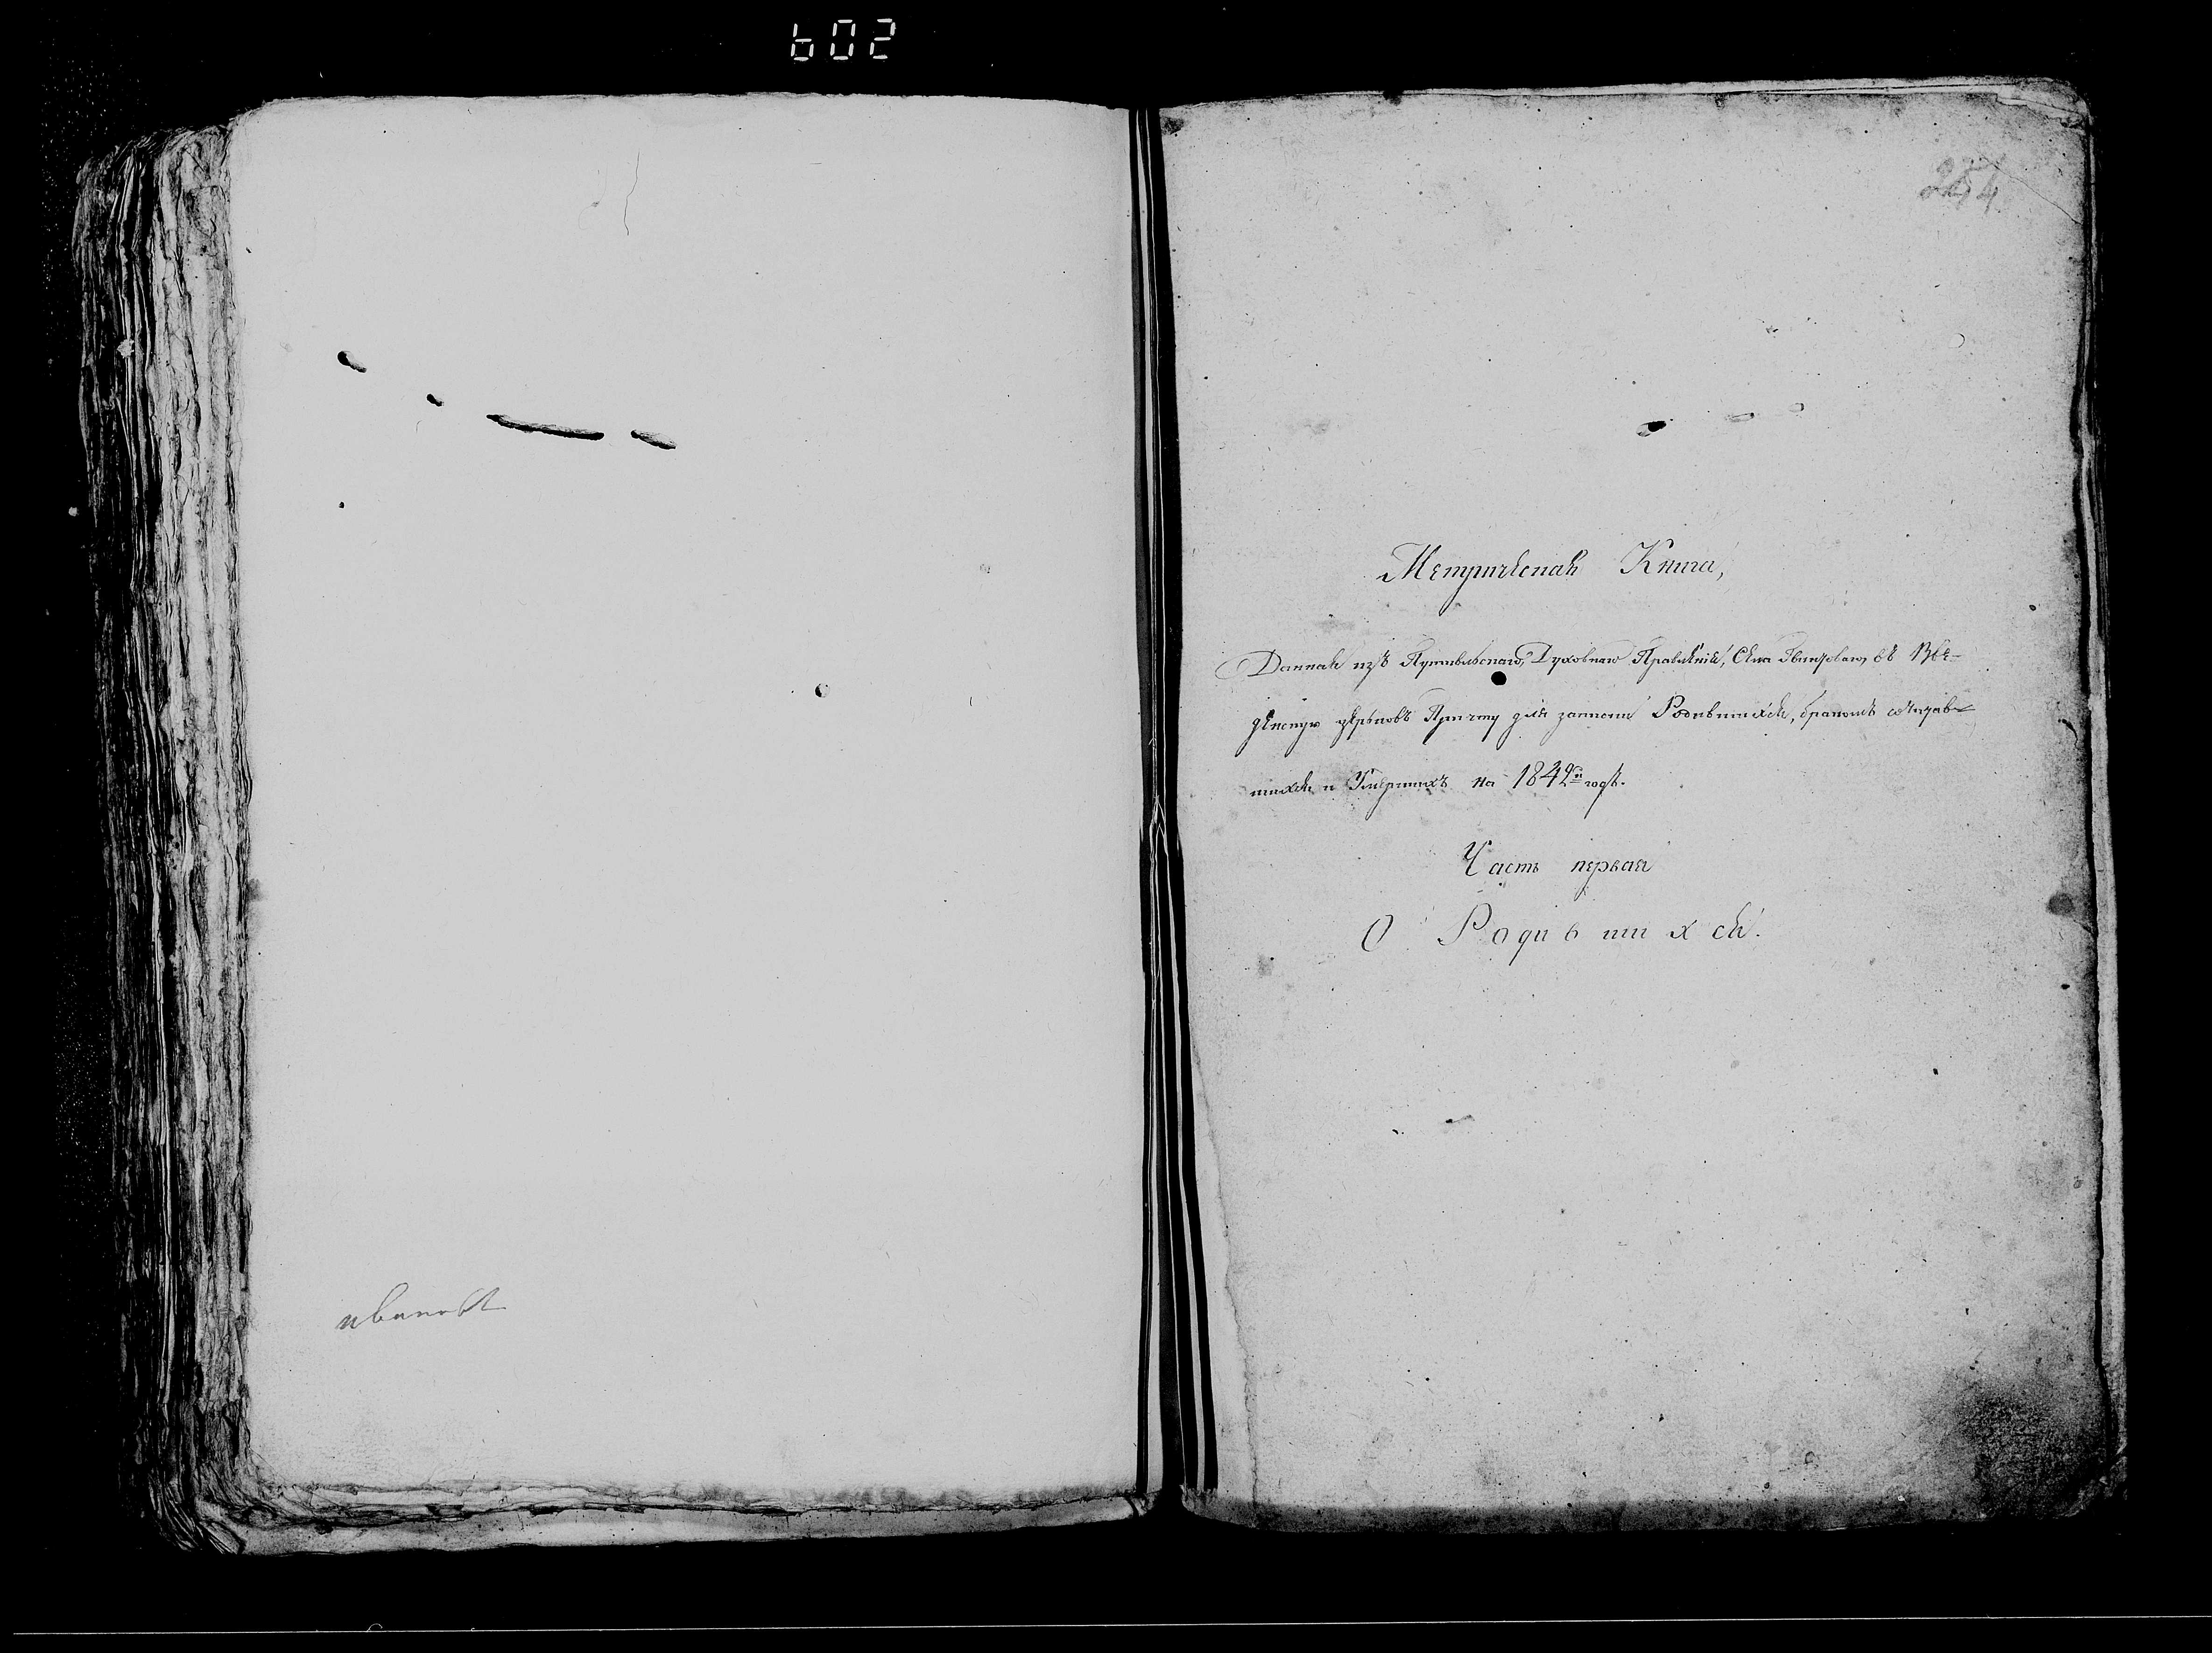 602
254
Метрическая Книга,
Данная изъ Путивльскаго Духовнаго Правленія, Села Гвинтоваго, въ Вве-
денскую церьковь Причту для записки Родившихся, бракомъ сочетав-
шихся и Умершихъ на 1842й годъ.
Часть первая
О Родившихся.